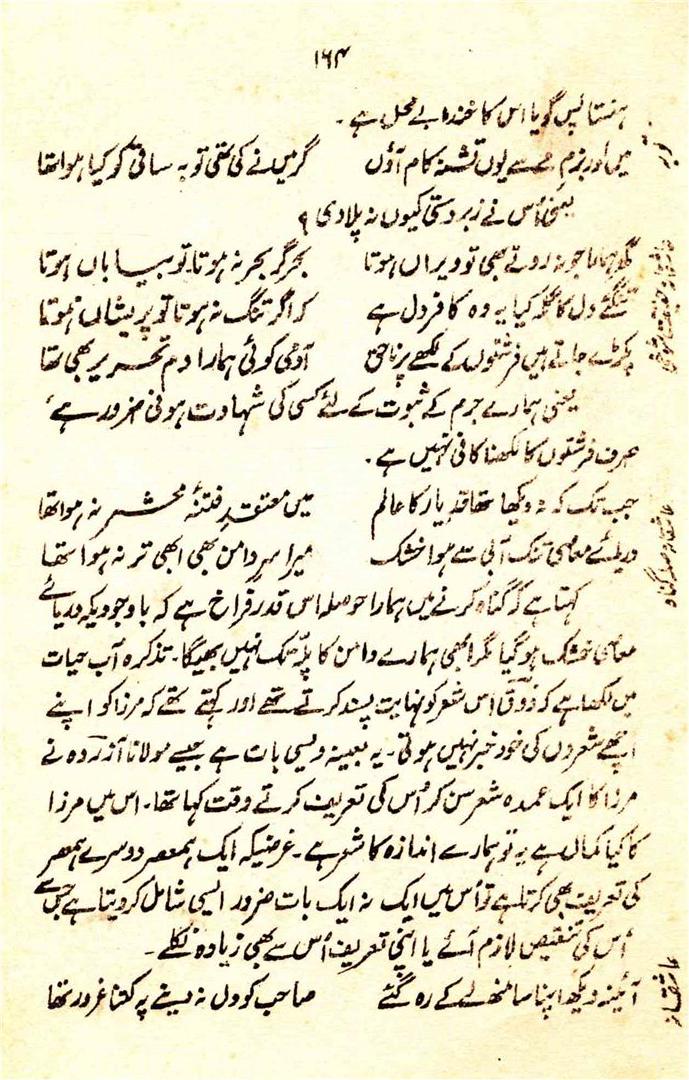 ۱۶۴
ہنستا پس گویا اس کا خندہ بے محل ہے ۔
میں اور بزمِ مے سے یوں تشنہ کام آؤں گر میں نے کی تھی توبہ ساقی کو کیا ہوا تھا
یعنی اُس نے زبردستی کیوں نہ پلادی ؟
گھر ہمارا جو نہ روتے بھی تو ویراں ہوتا بحر گر بحر نہ ہوتا تو بیاباں ہوتا
تنگیٔ دل کا گلہ کیا یہ وہ کافر دل ہے کہ اگر تنگ نہ ہوتا تو پریشاں ہوتا
پکڑے جاتے ہیں فرشتوں کے لکھے پر ناحق آدمی کوئی ہمارا دمِ تحریر بھی تھا
یعنی ہمارے جرم کے ثبوت کے لئے کسی کی شہادت ہونی ضرور ہے ،
صرف فرشتوں کا لکھنا کافی نہیں ہے ۔
جب تک کہ نہ دیکھا تھا قدِ یار کا عالم میں معتقدِ فتنۂ محشر نہ ہوا تھا
دریائے معاصی تنک آبی سے ہوا خشک میرا سرِ دامن بھی ابھی تر نہ ہوا تھا
کہتا ہے کہ گناہ کرنے میں ہمارا حوصلہ اس قدر فراخ ہے کہ باوجودیکہ دریائے
معاصی خشک ہوگیا مگر ابھی ہمارے دامن کا پلّہ تک نہیں بھیگا ۔ تذکرہ آب حیات
میں لکھا ہے کہ ذوق اس شعر کو نہایت پسند کرتے تھے اور کہتے تھے کہ مرزا کو اپنے
اچھے شعروں کی خود خبر نہیں ہوتی ۔ یہ بعینہ ویسی بات ہے جیسے مولانا آزردہ نے
مرزا کا ایک عمدہ شعر سن کر اُس کی تعریف کرتے وقت کہا تھا ۔ اس میں مرزا
کا کیا کمال ہے یہ تو ہمارے اندازہ کا شعر ہے ۔ غرضیکہ ایک ہمعصر دوسرے ہمعصر
کی تعریف بھی کرتا ہے تو اُس میں ایک نہ ایک بات ضرور ایسی شامل کر دیتا ہے جس سے
اُس کی تنقیص لازم آئے یا اپنی تعریف اُس سے بھی زیادہ نکلے ۔
آئینہ دیکھ اپنا سا منھ لے کے رہ گئے صاحب کو دل نہ دینے پہ کتنا غرور تھا
عاشقانہ